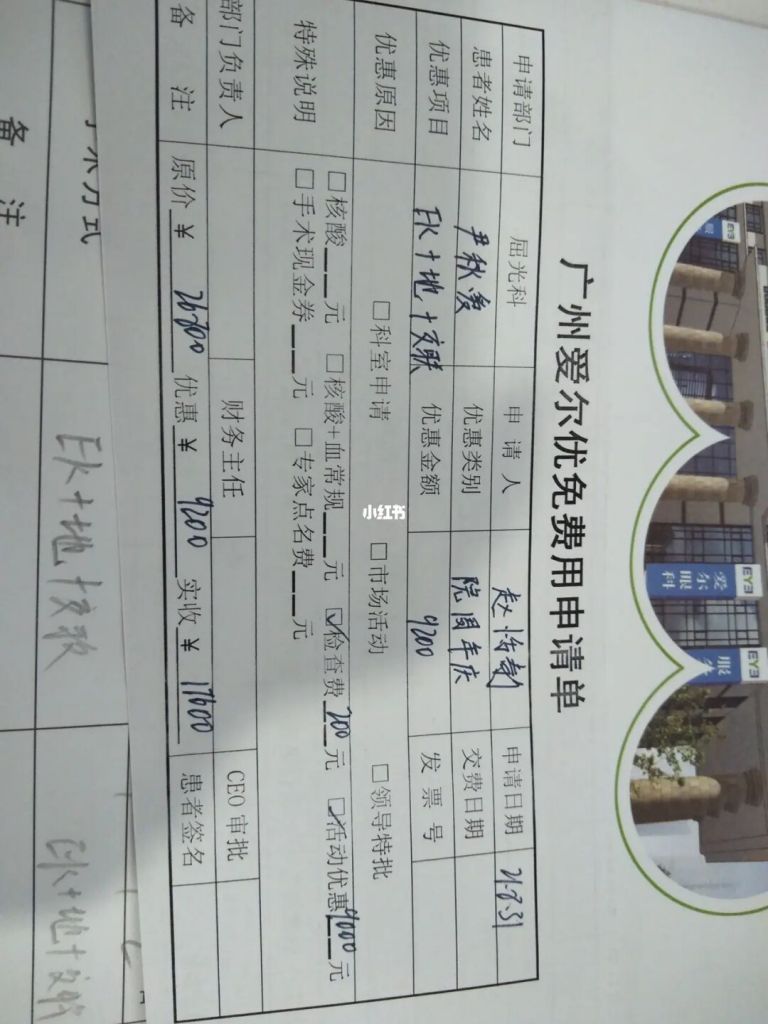 广州爱尔优免费用申请单
申请部门 屈光科 申请人 申请日期 21.8.31
患者姓名 尹秋爱 优惠类别 院周年庆 交费日期
优惠项目 EK+地+交联 优惠金额 9200 发票号
优惠原因 □科室申请 □市场活动 □领导特批
特殊说明 □核酸__元 □核酸+血常规__元 ☑检查费200元 ☑活动优惠9000元
□手术现金券__元 □专家点名费__元
部门负责人 财务主任 CEO审批
备注 原价¥26800 优惠¥9200 实收¥17600 患者签名
手术方式 EK+地+交联 EK+地+交联
备注
小红书
EYE
爱尔眼科
EYE
EYE